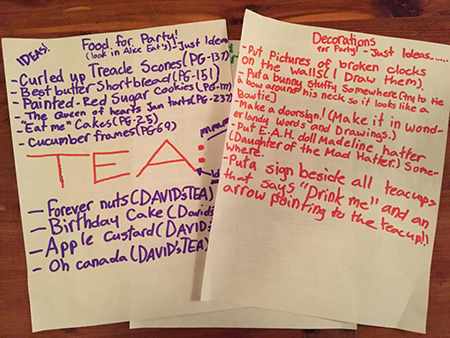 IDEAS!
Food for Party!
(look in Alice Eat's)-Just Ideas
-Curled up Treacle Scones (PG-137)
-Best butter Shortbread (PG-151)
-Painted-Red Sugar Cookies (PG-111)
-"The Queen of hearts Jam tarts (PG-237)
-"Eat me" Cakes (PG-25)
-Cucumber frames (PG-69)
TEA:
-Forever nuts (DAVIDSTEA)
-Birthday Cake (Davids
-Apple Custard (DAVID'S
-Oh canada (DAVID'S TEA)
Decorations
for Party! - Just Ideas......
-Put Pictures of broken clocks
on the walls (I Draw them).
-Put a bunny stuffy somewhere (try to tie
a bow around his neck so it looks like a
Bowtie)
-Make a doorsign! (Make it in wond-
erlandy words and Drawings.)
-Put E.A.H. doll Madeline hatter
(Daughter of the Mad Hatter) Some-
where.
-Put a sign beside all teacups
that says "Drink me" and an
arrow pointing to the teacup!)